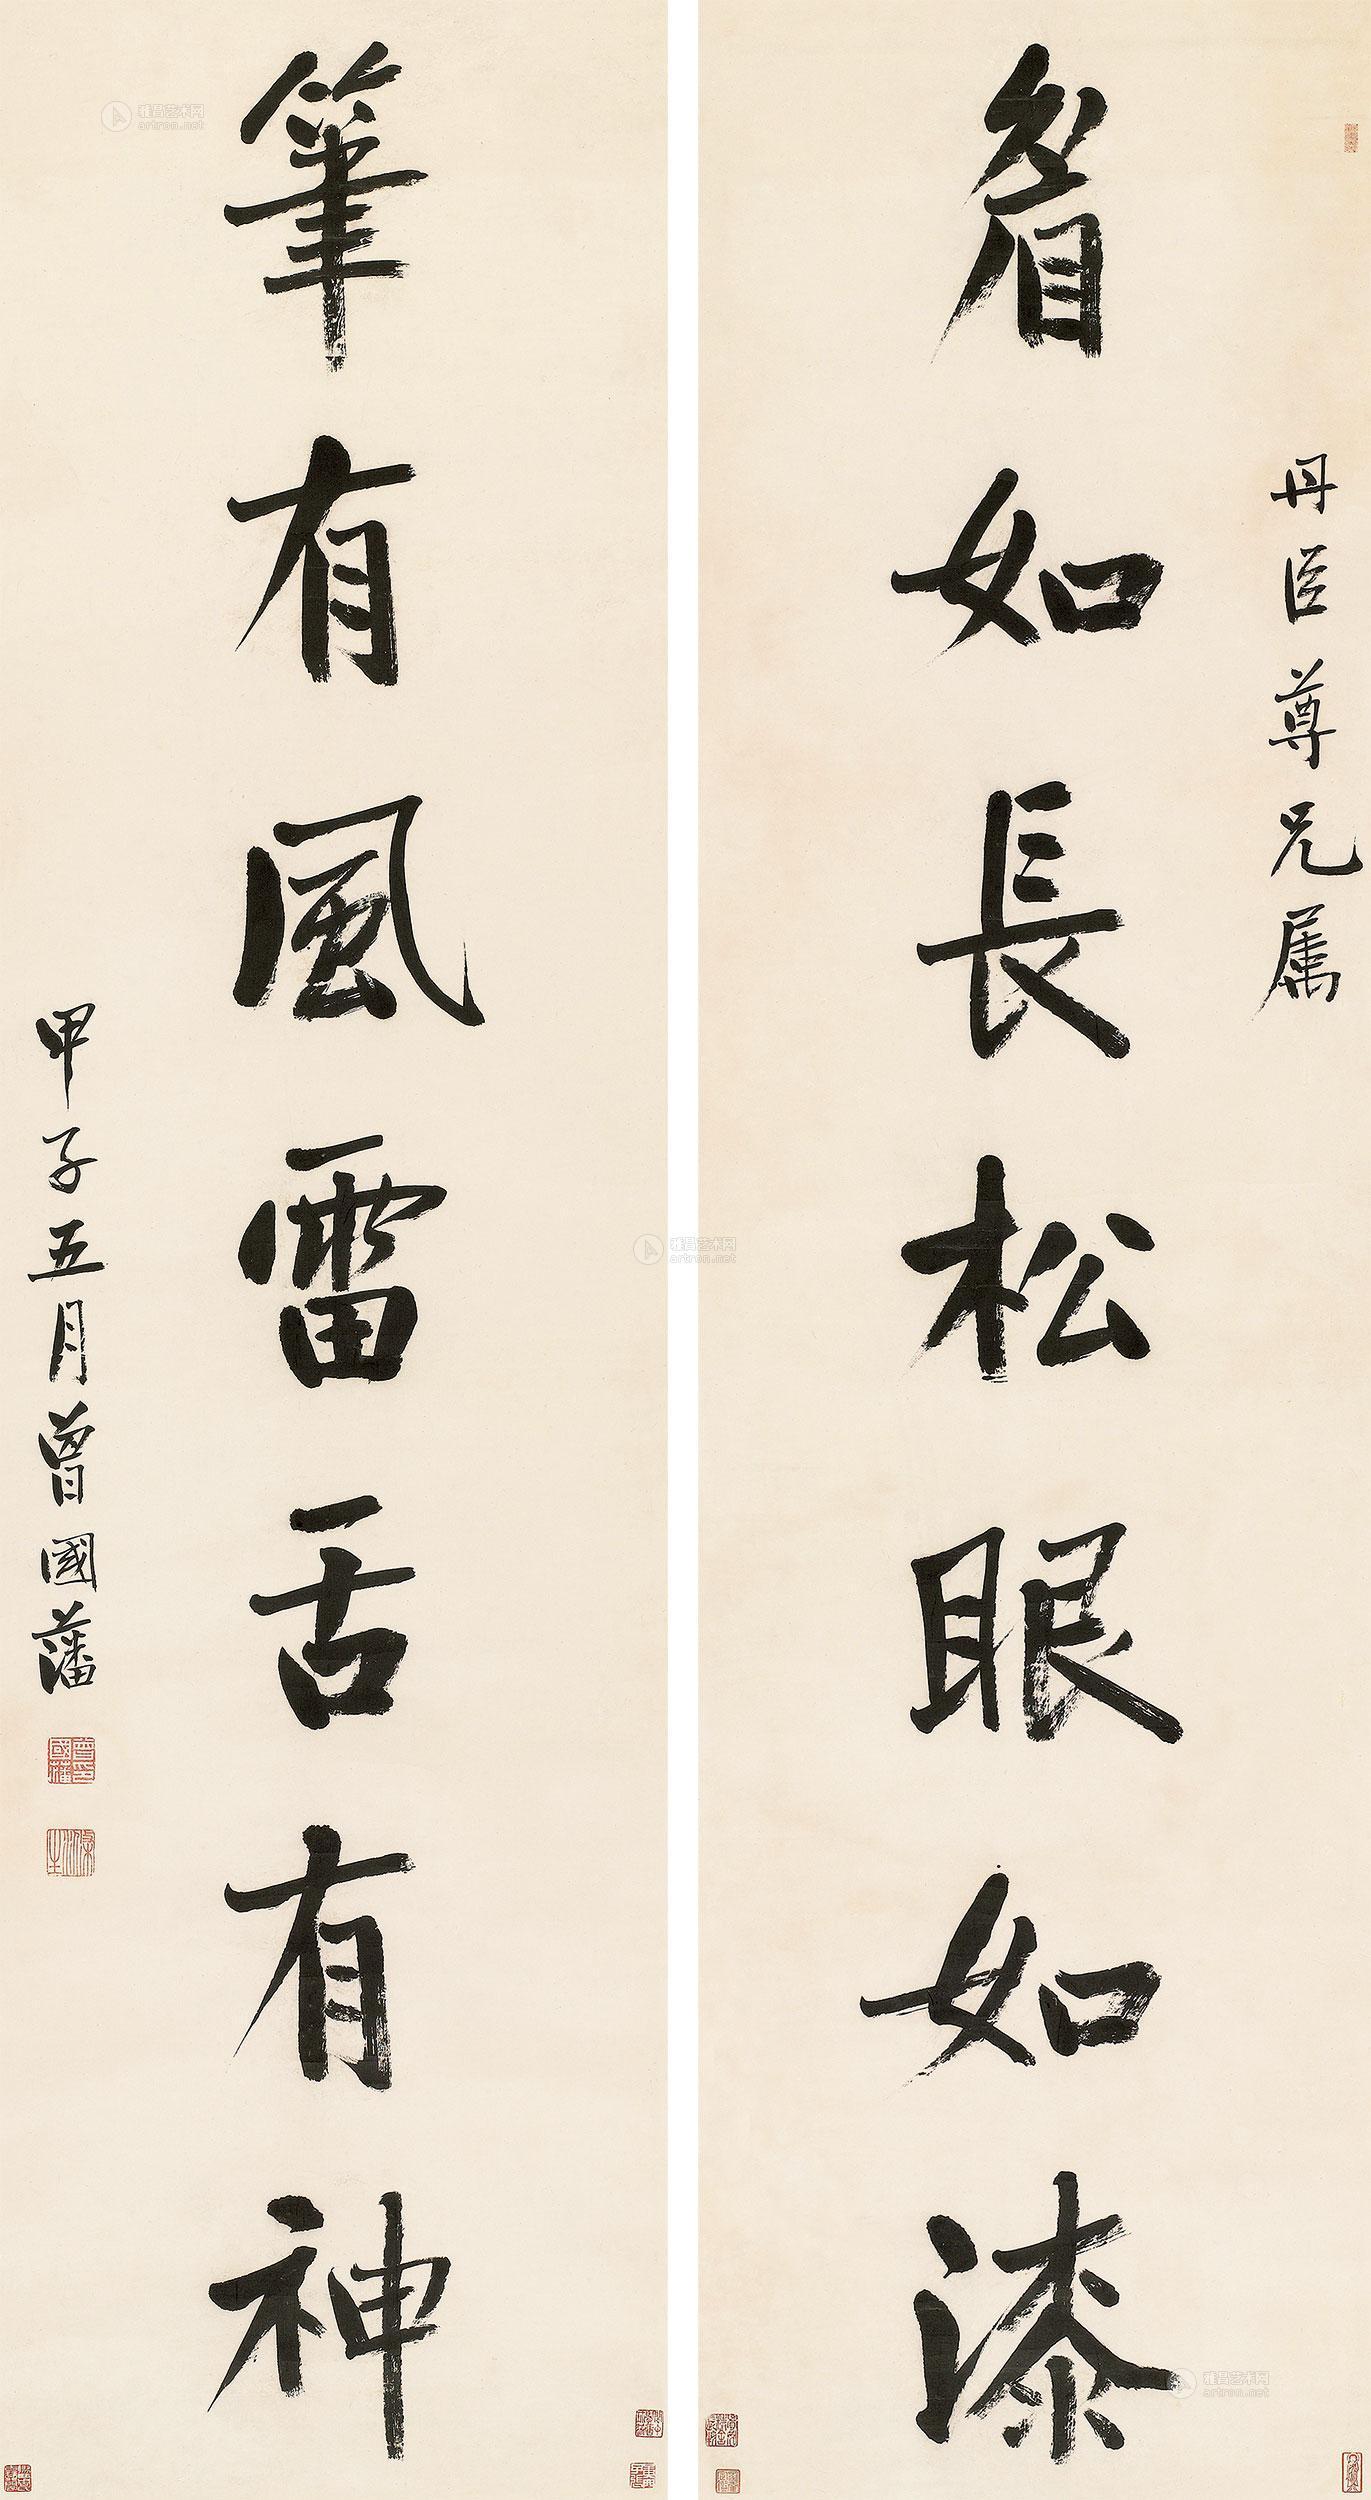 丹臣尊兄属
眉如長松眼如漆
筆有風雷舌有神
甲子五月曾國藩
曾國藩印
雅昌艺术网
artron.net
雅昌艺术网
artron.net
雅昌艺术网
artron.net